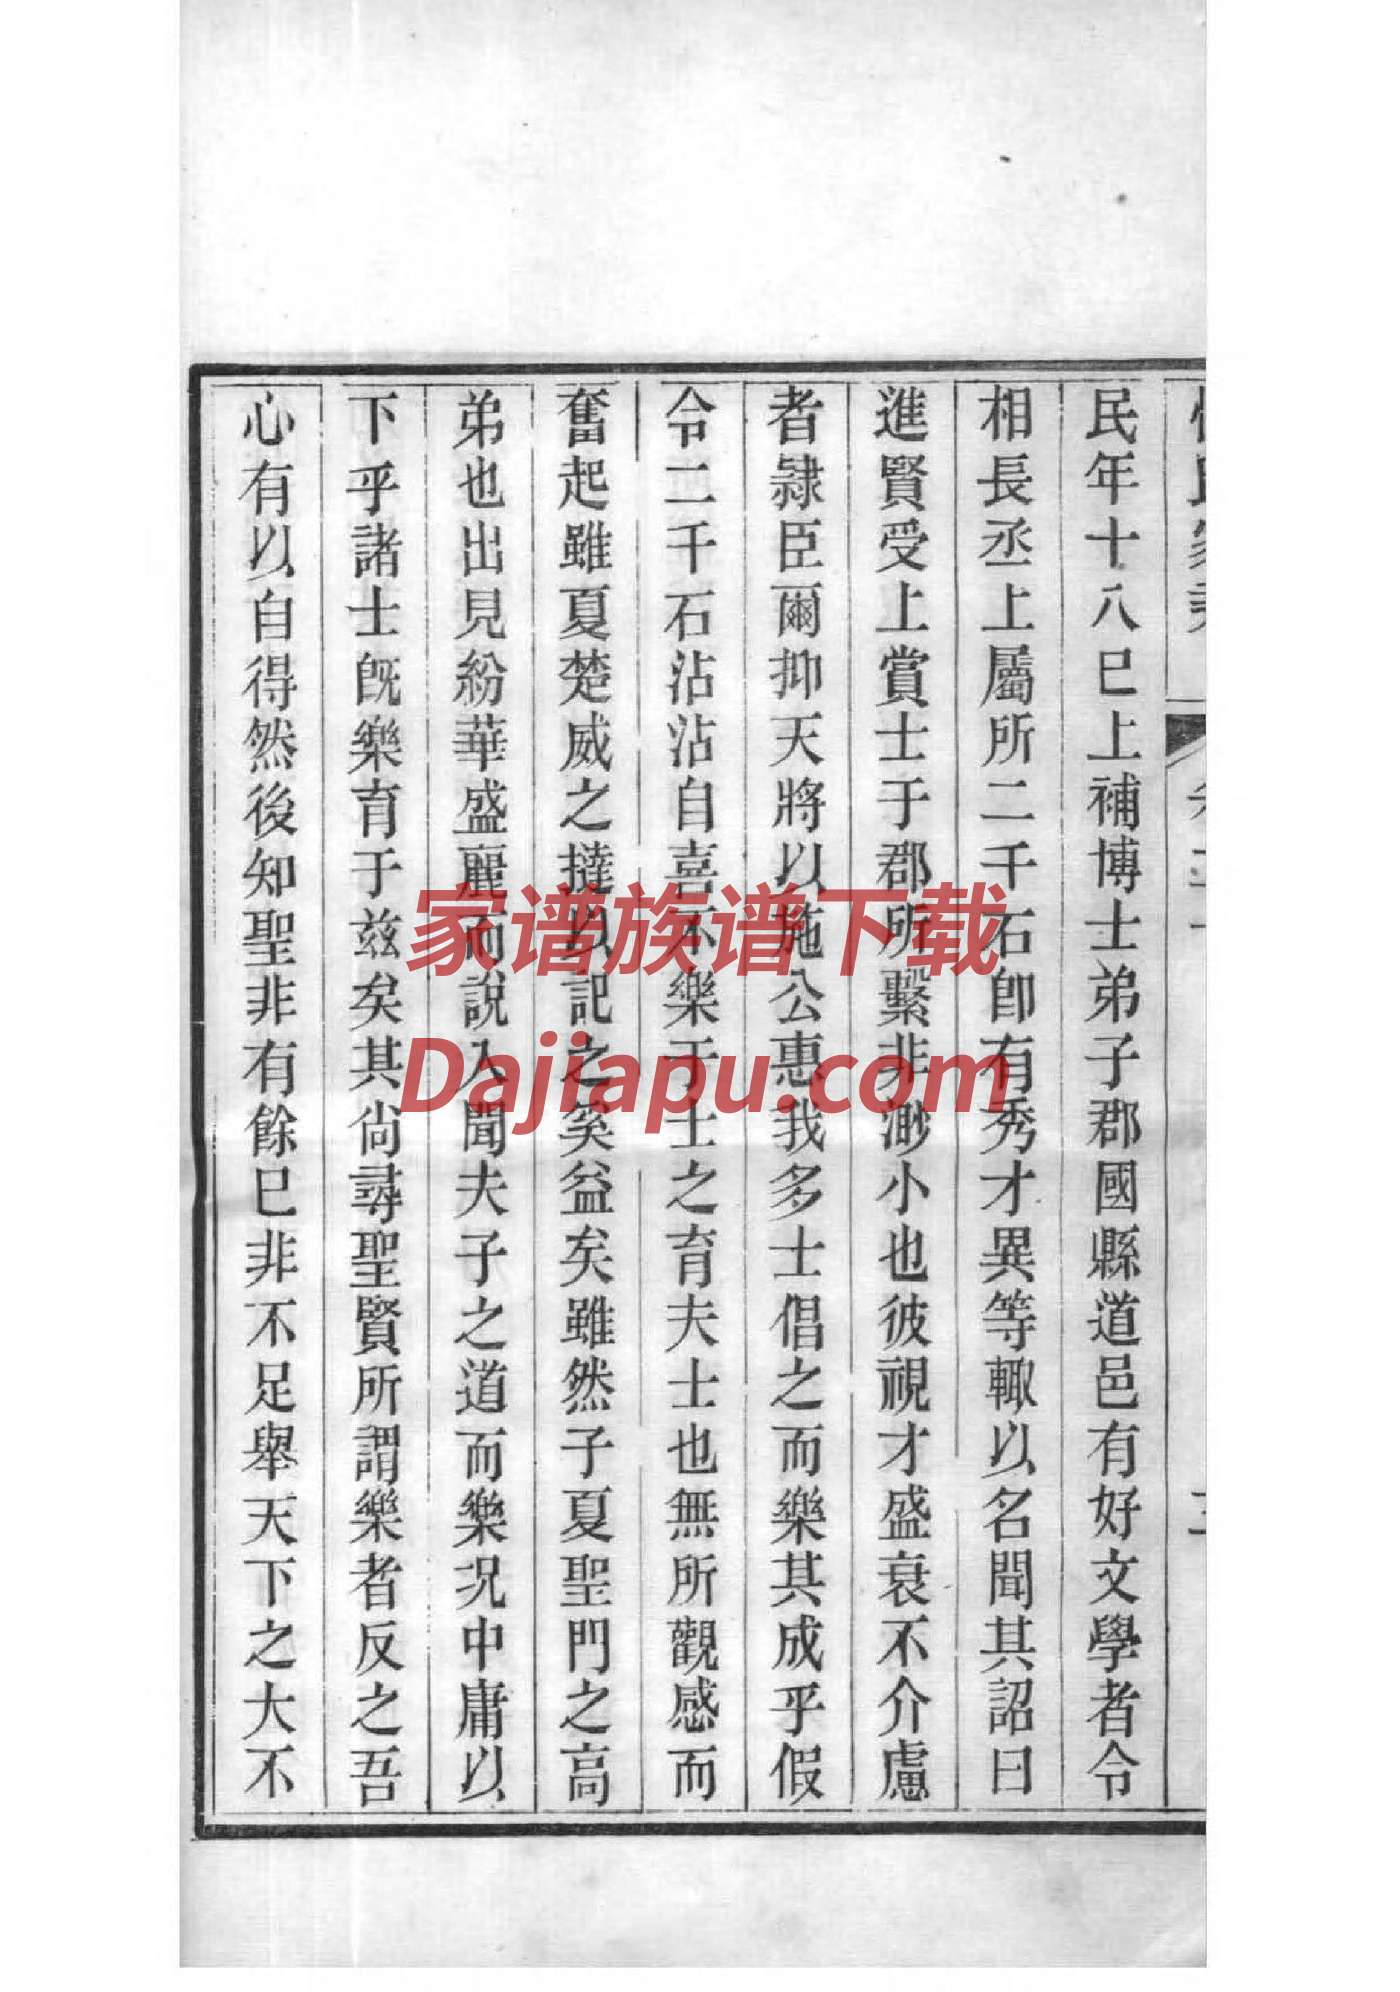 民年十八巳上補博士弟子郡國縣道邑有好文學者令
相長丞上屬所二千石卽有秀才異等輙以名聞其詔曰
進賢受上賞士于郡所繫非渺小也彼視才盛衰不介慮
者隷臣爾抑天將以施公惠我多士倡之而樂其成乎假
令二千石沾沾自喜不樂于士之育夫士也無所觀感而
奮起雖夏楚威之撻以記之奚益矣雖然子夏聖門之高
弟也出見紛華盛麗而說入聞夫子之道而樂况中庸以
下乎諸士旣樂育于茲矣其尙尋聖賢所謂樂者反之吾
心有以自得然後知聖非有餘巳非不足舉天下之大不
家谱族谱下载
Dajiapu.com